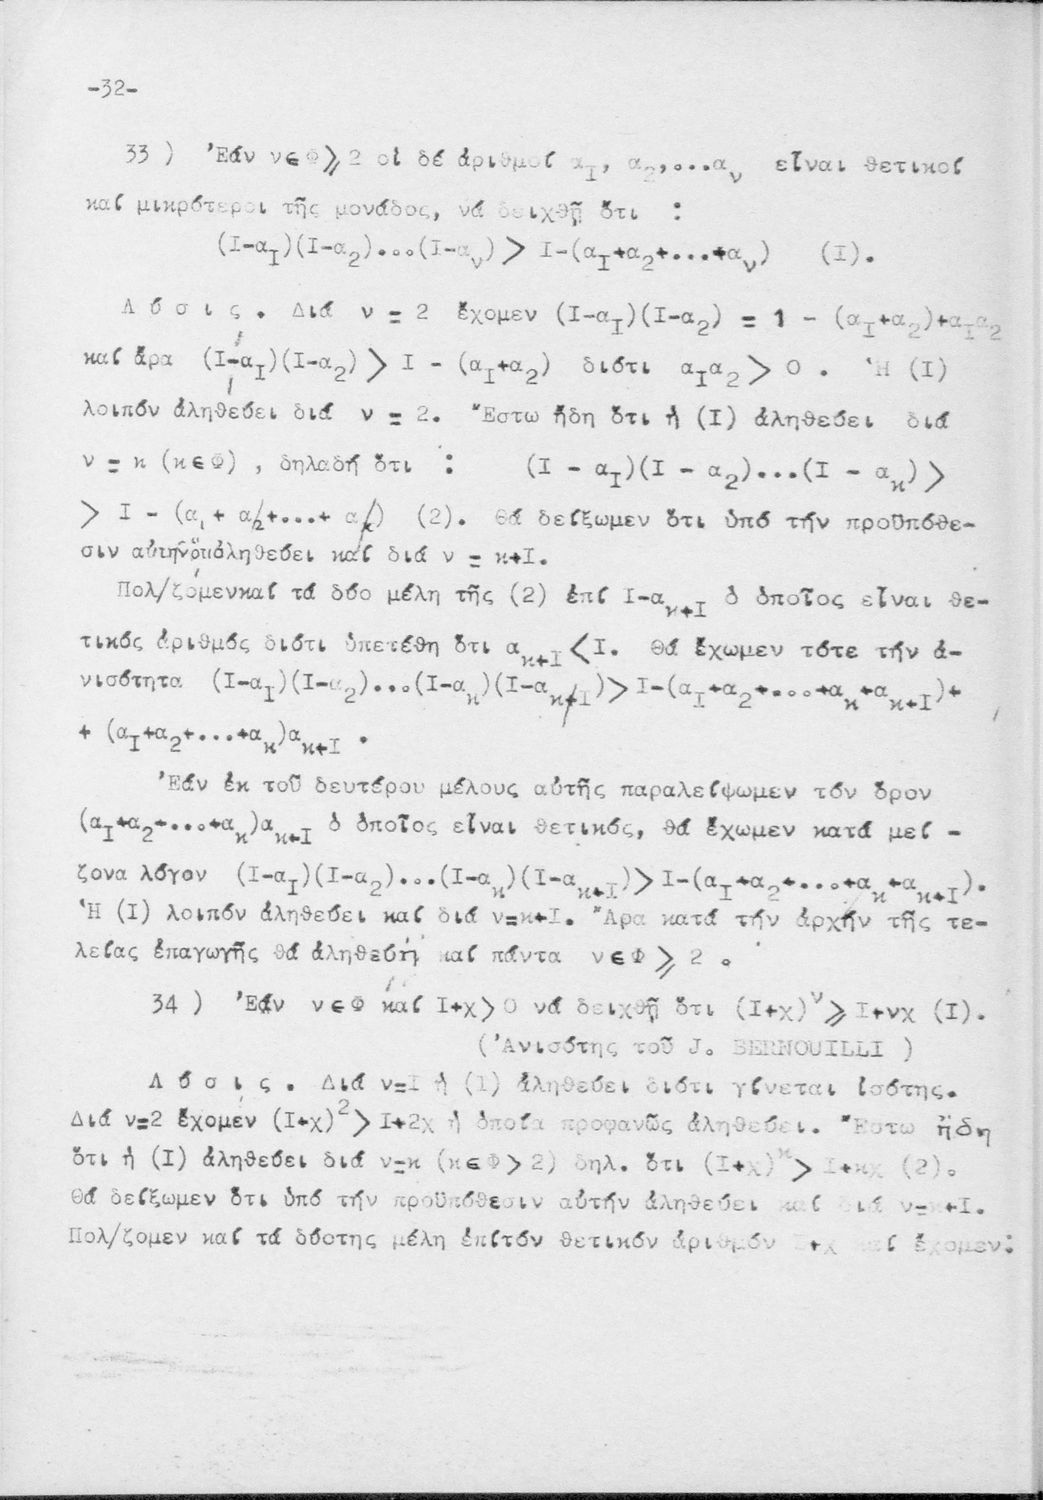 -32-
33 ) Ἐάν ν∈Φ⩾2 οἱ δέ ἀριθμοί α_I, α_2,...α_ν εἶναι θετικοί
καί μικρότεροι τῆς μονάδος, νά δειχθῇ ὅτι :
(I-α_I)(I-α_2)...(I-α_ν) > I-(α_I+α_2+...+α_ν) (I).
Λ ύ σ ι ς . Διά ν = 2 ἔχομεν (I-α_I)(I-α_2) = 1 - (α_I+α_2)+α_Iα_2
καί ἄρα (I-α_I)(I-α_2) > I - (α_I+α_2) διότι α_Iα_2 > 0 . Ἡ (I)
λοιπόν ἀληθεύει διά ν = 2. Ἔστω ἤδη ὅτι ἡ (I) ἀληθεύει διά
ν = κ (κ∈Φ) , δηλαδή ὅτι : (I - α_I)(I - α_2)...(I - α_κ) >
> I - (α_1 + α_2+...+ α_κ) (2). Θά δείξωμεν ὅτι ὑπό τήν προϋπόθε-
σιν αὐτήν ἀληθεύει καί διά ν = κ+I.
Πολ/ζομεν καί τά δύο μέλη τῆς (2) ἐπί I-α_κ+I ὁ ὁποῖος εἶναι θε-
τικός ἀριθμός διότι ὑπετέθη ὅτι α_κ+I < I. Θά ἔχωμεν τότε τήν ἀ-
νισότητα (I-α_I)(I-α_2)...(I-α_κ)(I-α_κ+I) > I-(α_I+α_2+...+α_κ+α_κ+I)+
+ (α_I+α_2+...+α_κ)α_κ+I .
Ἐάν ἐκ τοῦ δευτέρου μέλους αὐτῆς παραλείψωμεν τόν ὅρον
(α_I+α_2+...+α_κ)α_κ+I ὁ ὁποῖος εἶναι θετικός, θά ἔχωμεν κατά μεί -
ζονα λόγον (I-α_I)(I-α_2)...(I-α_κ)(I-α_κ+I) > I-(α_I+α_2+...+α_κ+α_κ+I).
Ἡ (I) λοιπόν ἀληθεύει καί διά ν=κ+I. Ἄρα κατά τήν ἀρχήν τῆς τε-
λείας ἐπαγωγῆς θά ἀληθεύῃ καί πάντα ν∈Φ ⩾ 2 .
34 ) Ἐάν ν∈Φ καί I+χ>0 νά δειχθῇ ὅτι (I+χ)^ν ⩾ I+νχ (I).
(Ἀνισότης τοῦ J. BERNOUILLI )
Λ ύ σ ι ς . Διά ν=I ἡ (1) ἀληθεύει διότι γίνεται ἰσότης.
Διά ν=2 ἔχομεν (I+χ)^2 > I+2χ ἡ ὁποία προφανῶς ἀληθεύει. Ἔστω ἤδη
ὅτι ἡ (I) ἀληθεύει διά ν=κ (κ∈Φ>2) δηλ. ὅτι (I+χ)^κ > I+κχ (2).
Θά δείξωμεν ὅτι ὑπό τήν προϋπόθεσιν αὐτήν ἀληθεύει καί διά ν=κ+I.
Πολ/ζομεν καί τά δύοτης μέλη ἐπίτόν θετικόν ἀριθμόν I+χ καί ἔχομεν: